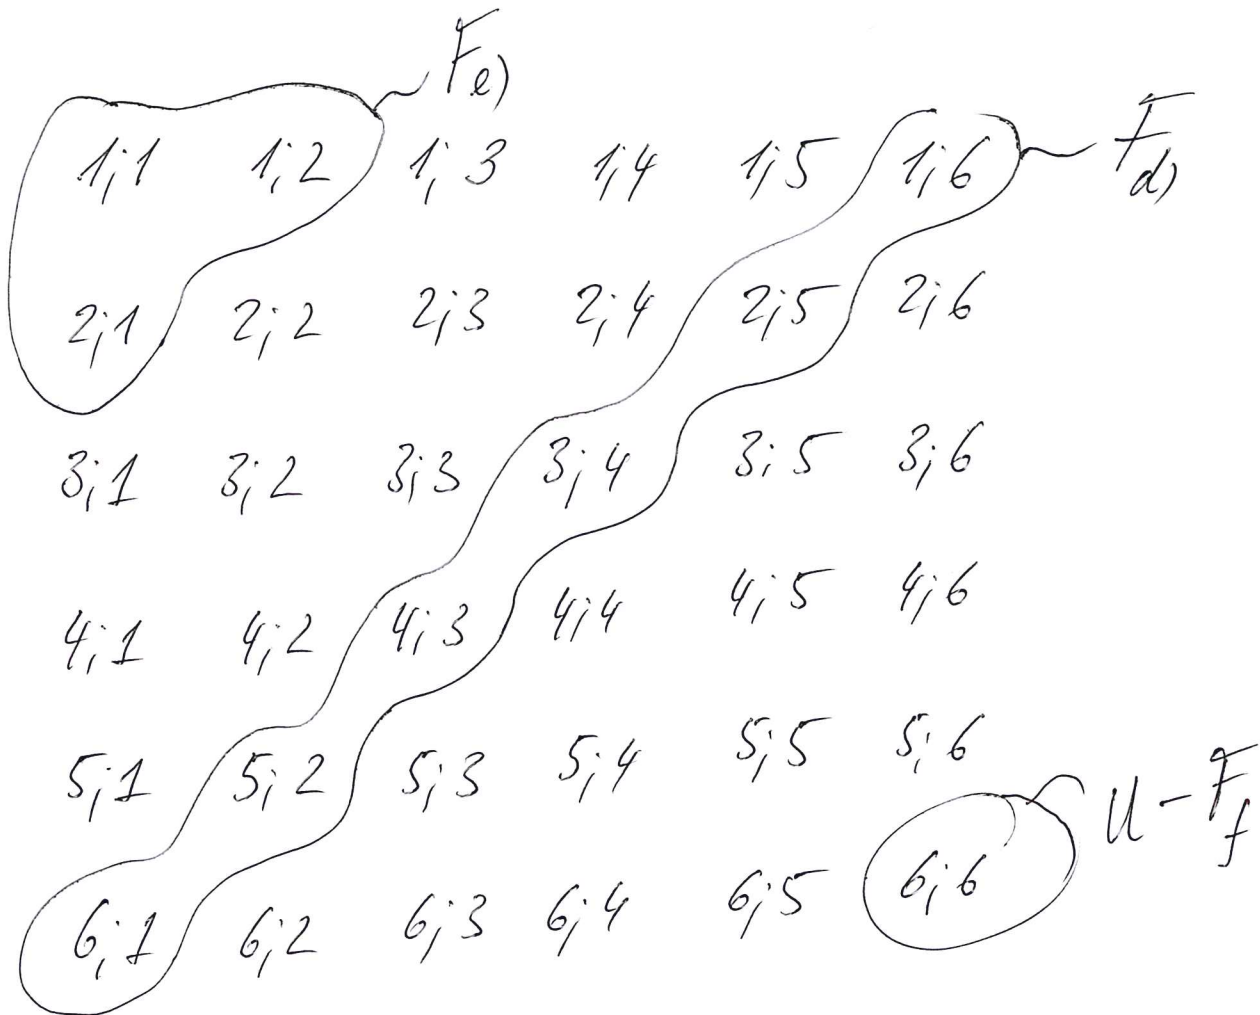 Fe)
Fd)
1;1 1;2 1;3 1;4 1;5 1;6
2;1 2;2 2;3 2;4 2;5 2;6
3;1 3;2 3;3 3;4 3;5 3;6
4;1 4;2 4;3 4;4 4;5 4;6
5;1 5;2 5;3 5;4 5;5 5;6
U-Ff
6;1 6;2 6;3 6;4 6;5 6;6